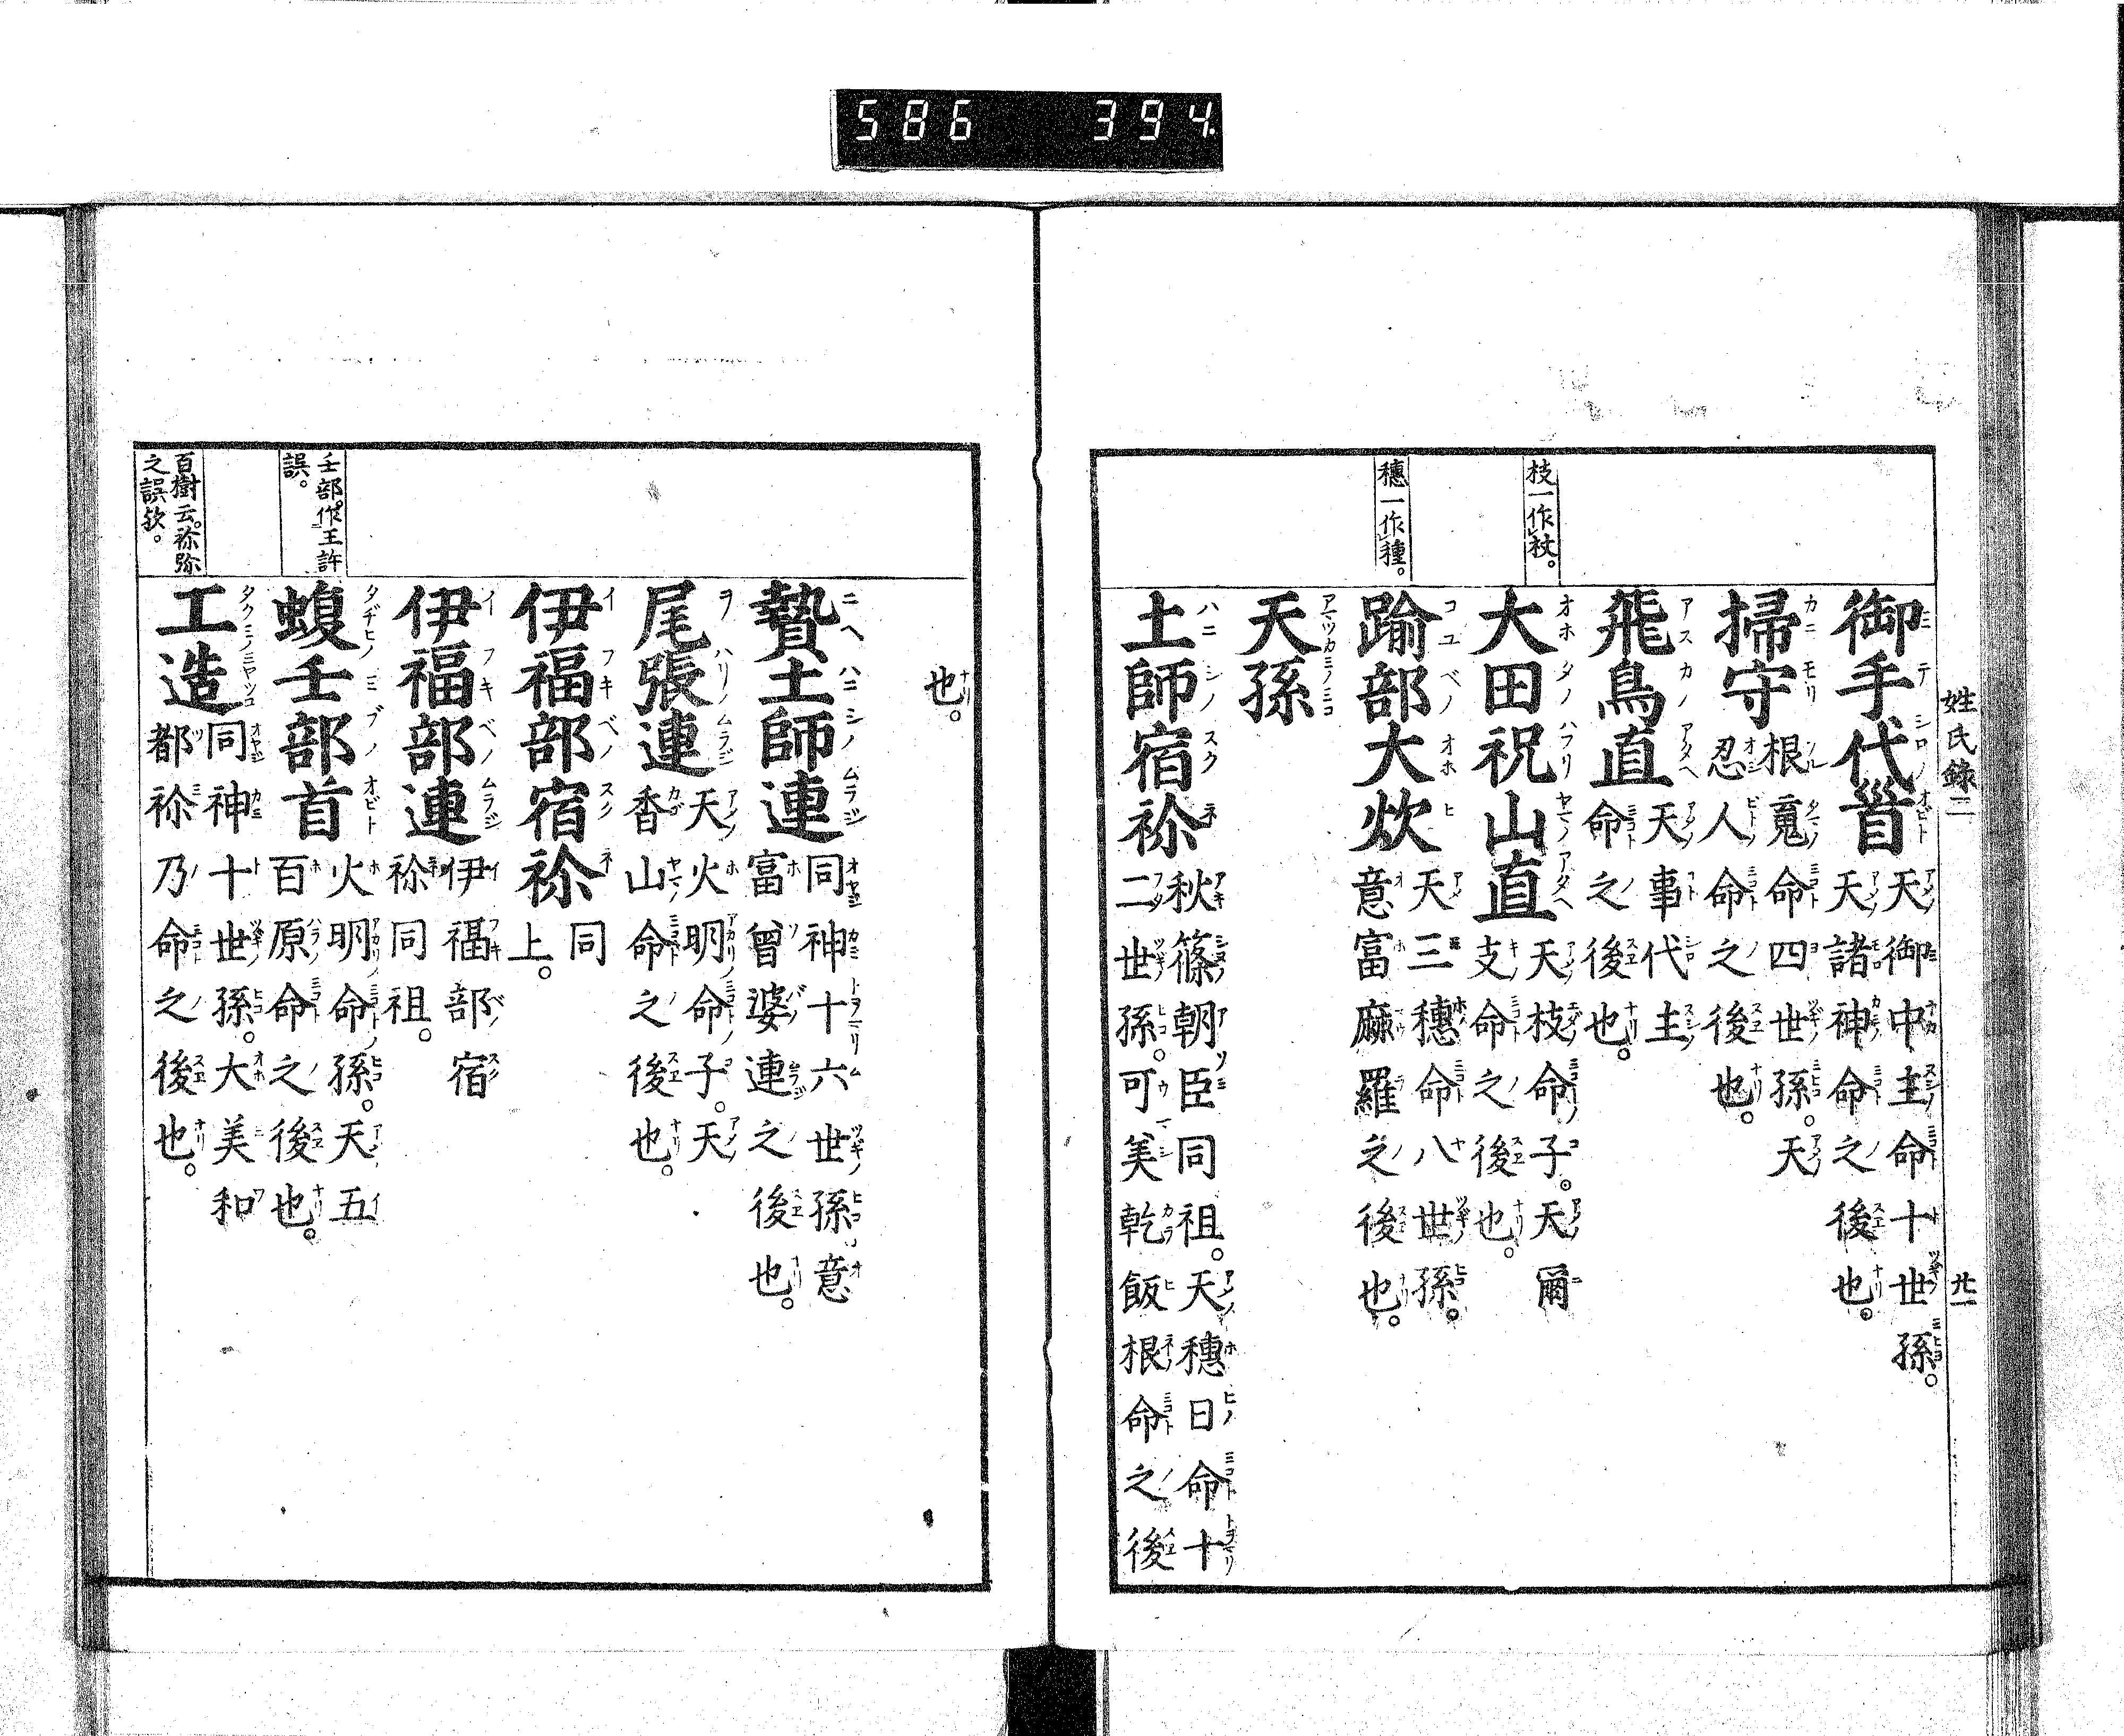 586 394.
姓氏錄二 廿一
枝一作杖。
穗一作種。
御手代首 天御中主命十世孫。
天諸神命之後也。
掃守 根䰟命四世孫。天
忍人命之後也。
飛鳥直 天事代主
命之後也。
大田祝山直 天枝命子。天爾
支命之後也。
踰部大炊 天三穗命八世孫。
意富麻羅之後也。
天孫
土師宿祢 秋篠朝臣同祖。天穗日命十
二世孫。可美乾飯根命之後
也。
壬部。作王許
誤。
百樹云。祢弥
之誤欤。
贄土師連 同神十六世孫意
富曾婆連之後也。
尾張連 天火明命子。天
香山命之後也。
伊福部宿祢 同
上。
伊福部連 伊福部宿
祢同祖。
蝮壬部首 火明命孫。天五
百原命之後也。
工造 同神十世孫。大美和
都祢乃命之後也。